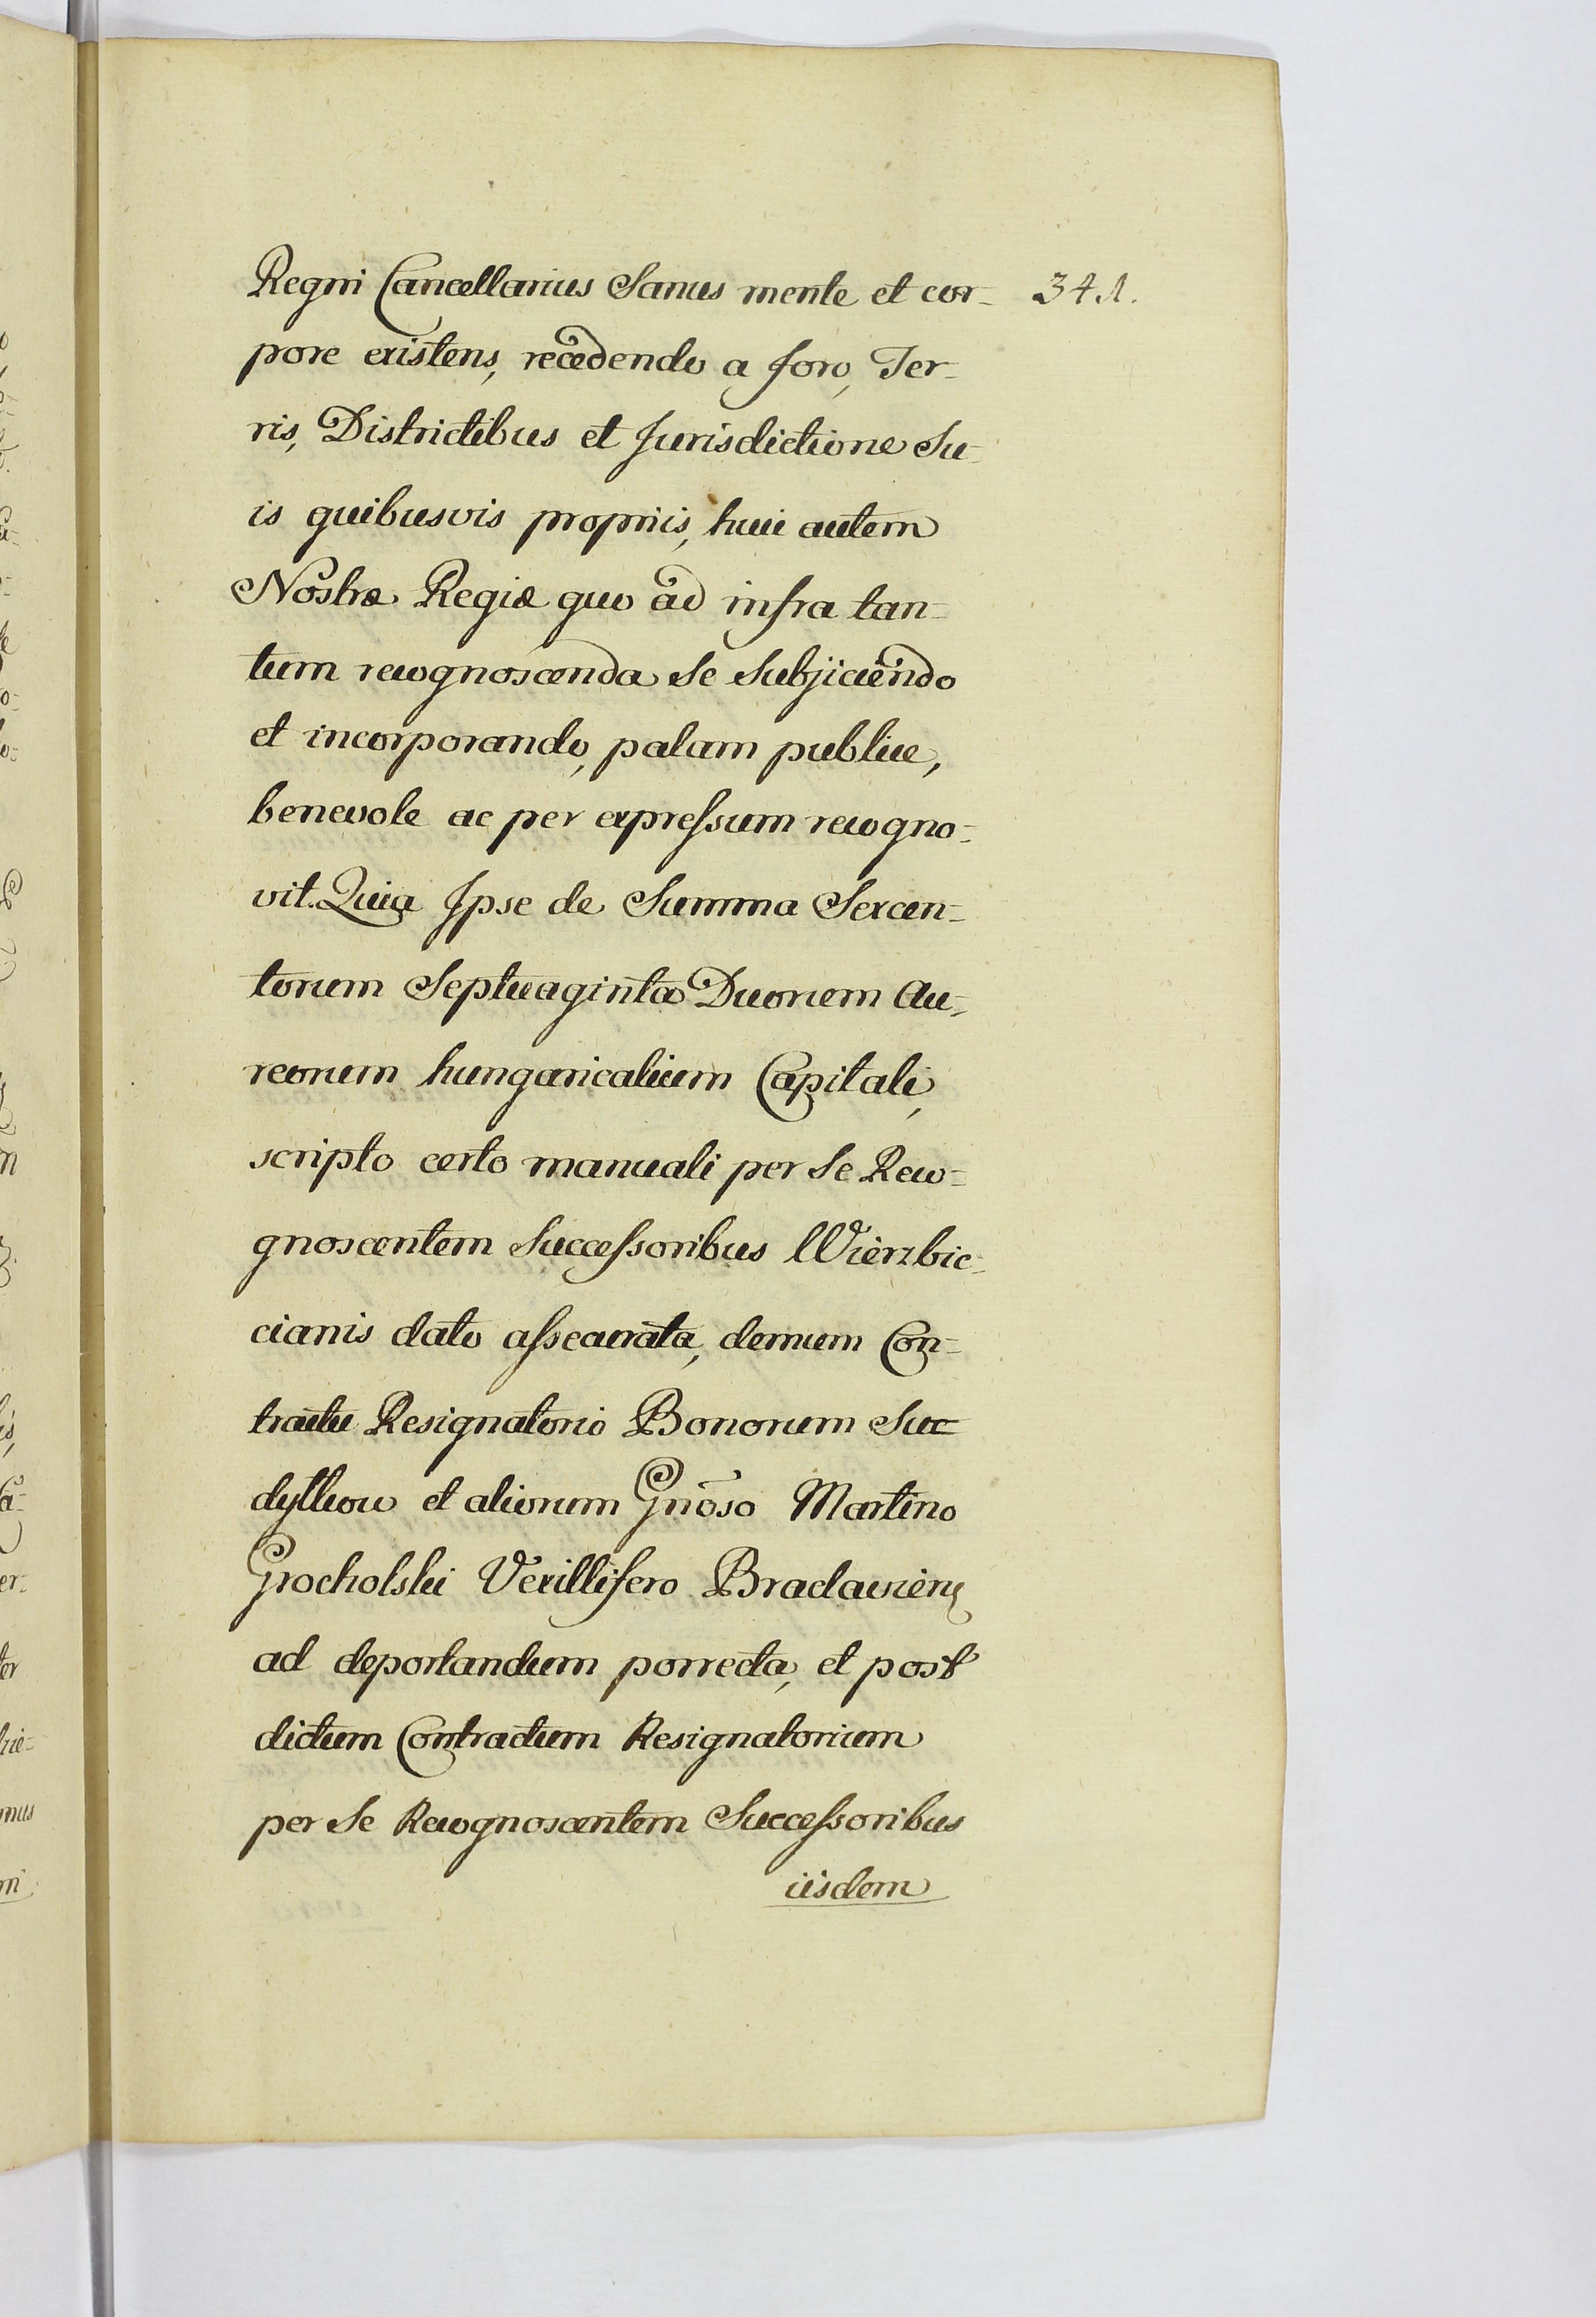 Regni Cancellarius Sanus mente et cor= 341.
pore existens, recedendo a foro, Ter=
ris, Districtibus et Jurisdictione Su=
is quibusvis propriis, huic autem
Nostræ Regiæ quo ad infra tan=
tum recognoscenda se subjiciendo
et incorporando, palam publice,
benevole ac per expressum recogno=
vit. Quia Ipse de Summa Sexcen=
torum Septuaginta Duorum Au=
reorum hungaricalium Capitali,
scripto certo manuali per se Reco=
gnoscentem Successoribus Wierzbic=
cianis dato assecurata, demum Con=
tractu Resignatorio Bonorum Su=
dytkow et aliorum Gnõso Martino
Grocholski Vexillifero Braclavien
ad deportandum porrecta, et post
dictum Contractum Resignatorium
per se Recognoscentem Successoribus
iisdem